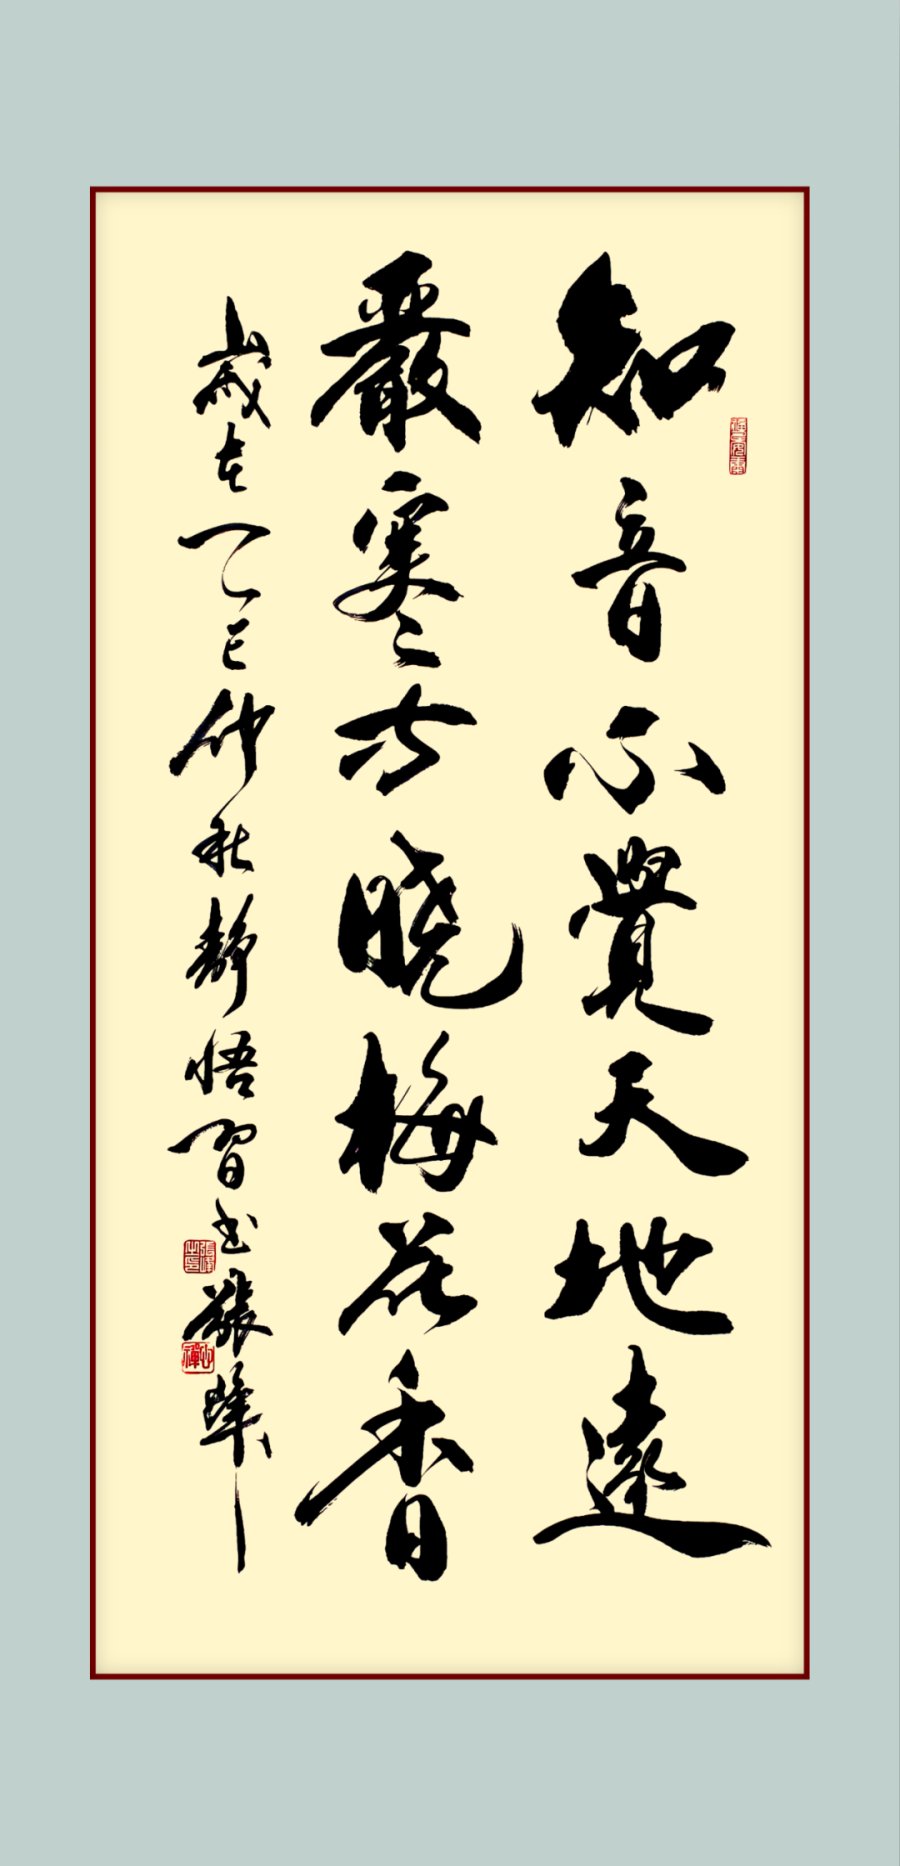 知音不覺天地遠
嚴寒方曉梅花香
歲在乙巳仲秋靜悟習書張華